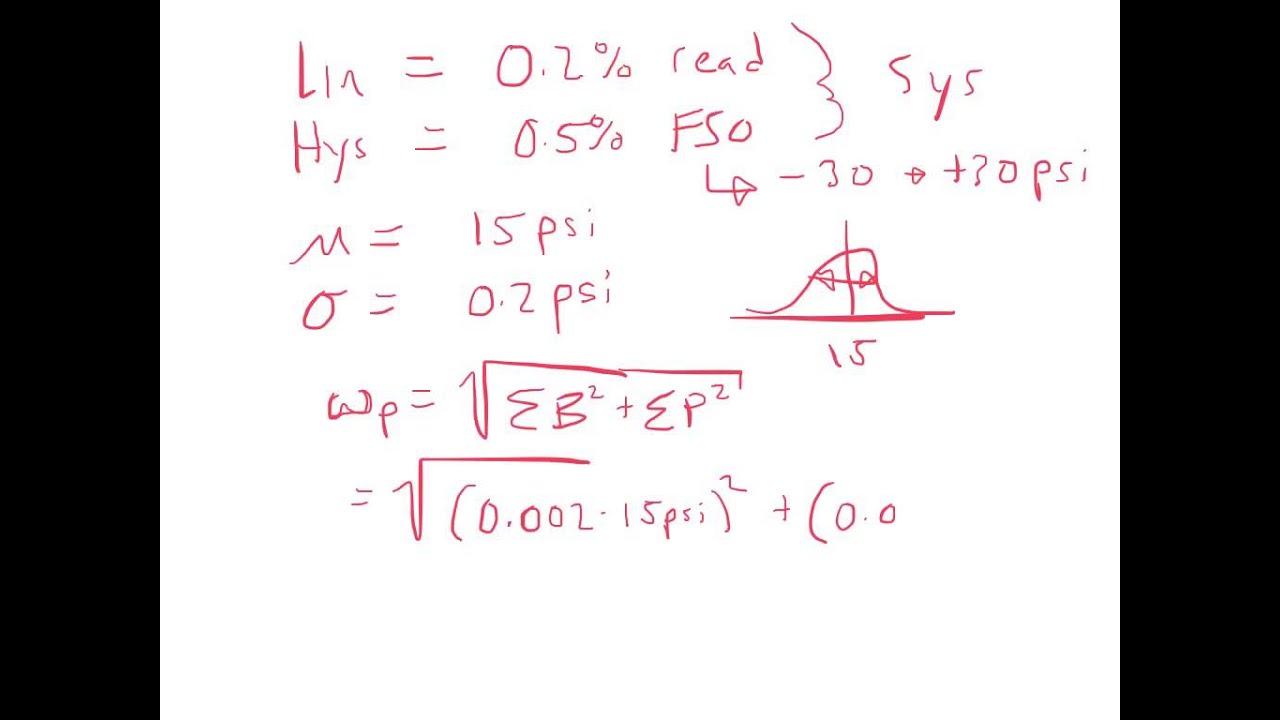 Lin = 0.2% read } Sys
Hys = 0.5% FSO
↳ -30 → +30psi
μ = 15psi
σ = 0.2psi
15
ωp = √(ΣB² + ΣP²)
= √(0.002·15psi)² + (0.0